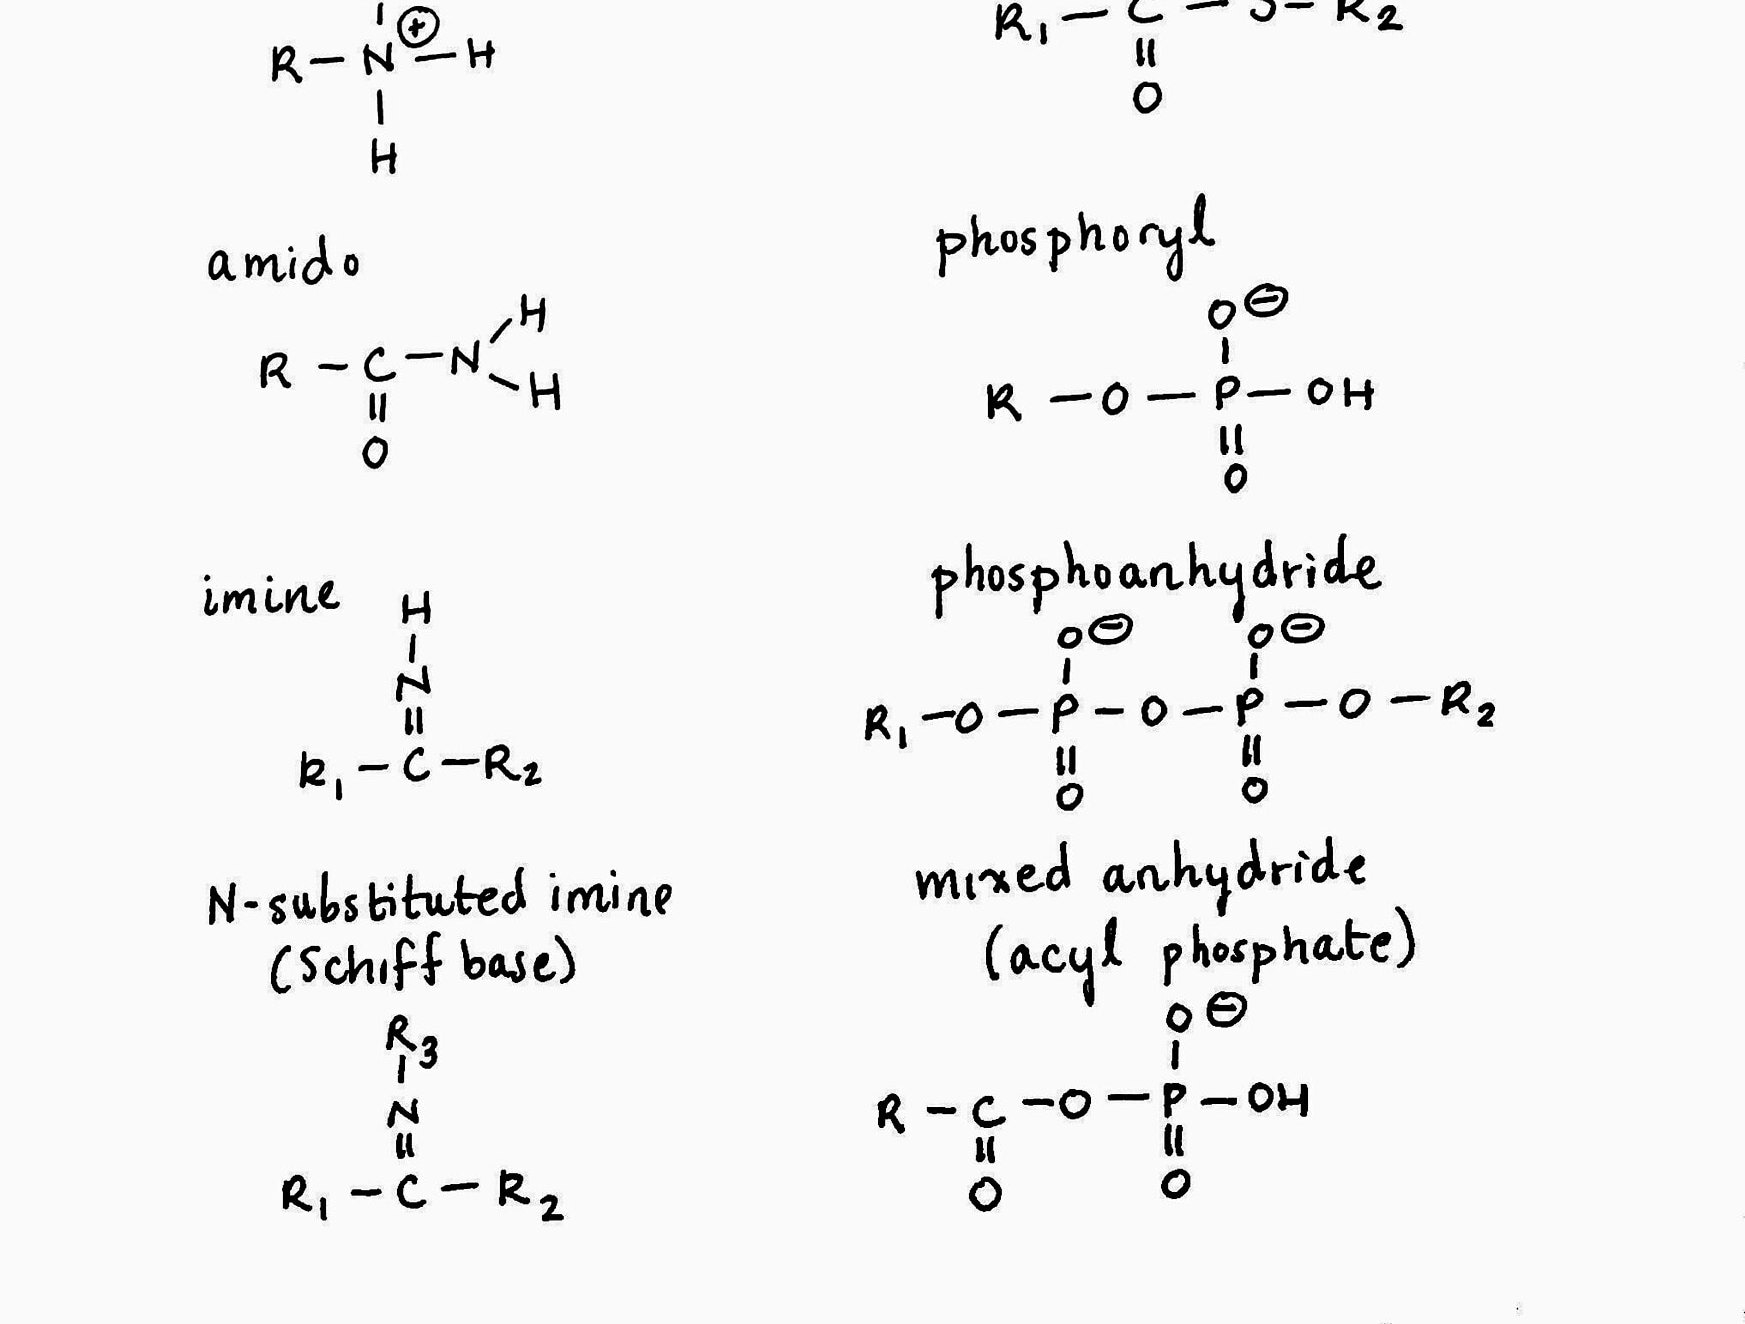 R – N⊕ – H
H
amido
R – C – N
H
H
O
imine
H
N
R₁ – C – R₂
N-substituted imine
(Schiff base)
R₃
N
R₁ – C – R₂
R₁ – C – S – R₂
O
phosphoryl
O⊖
R – O – P – OH
O
phosphoanhydride
O⊖ O⊖
R₁ – O – P – O – P – O – R₂
O O
mixed anhydride
(acyl phosphate)
O⊖
R – C – O – P – OH
O O